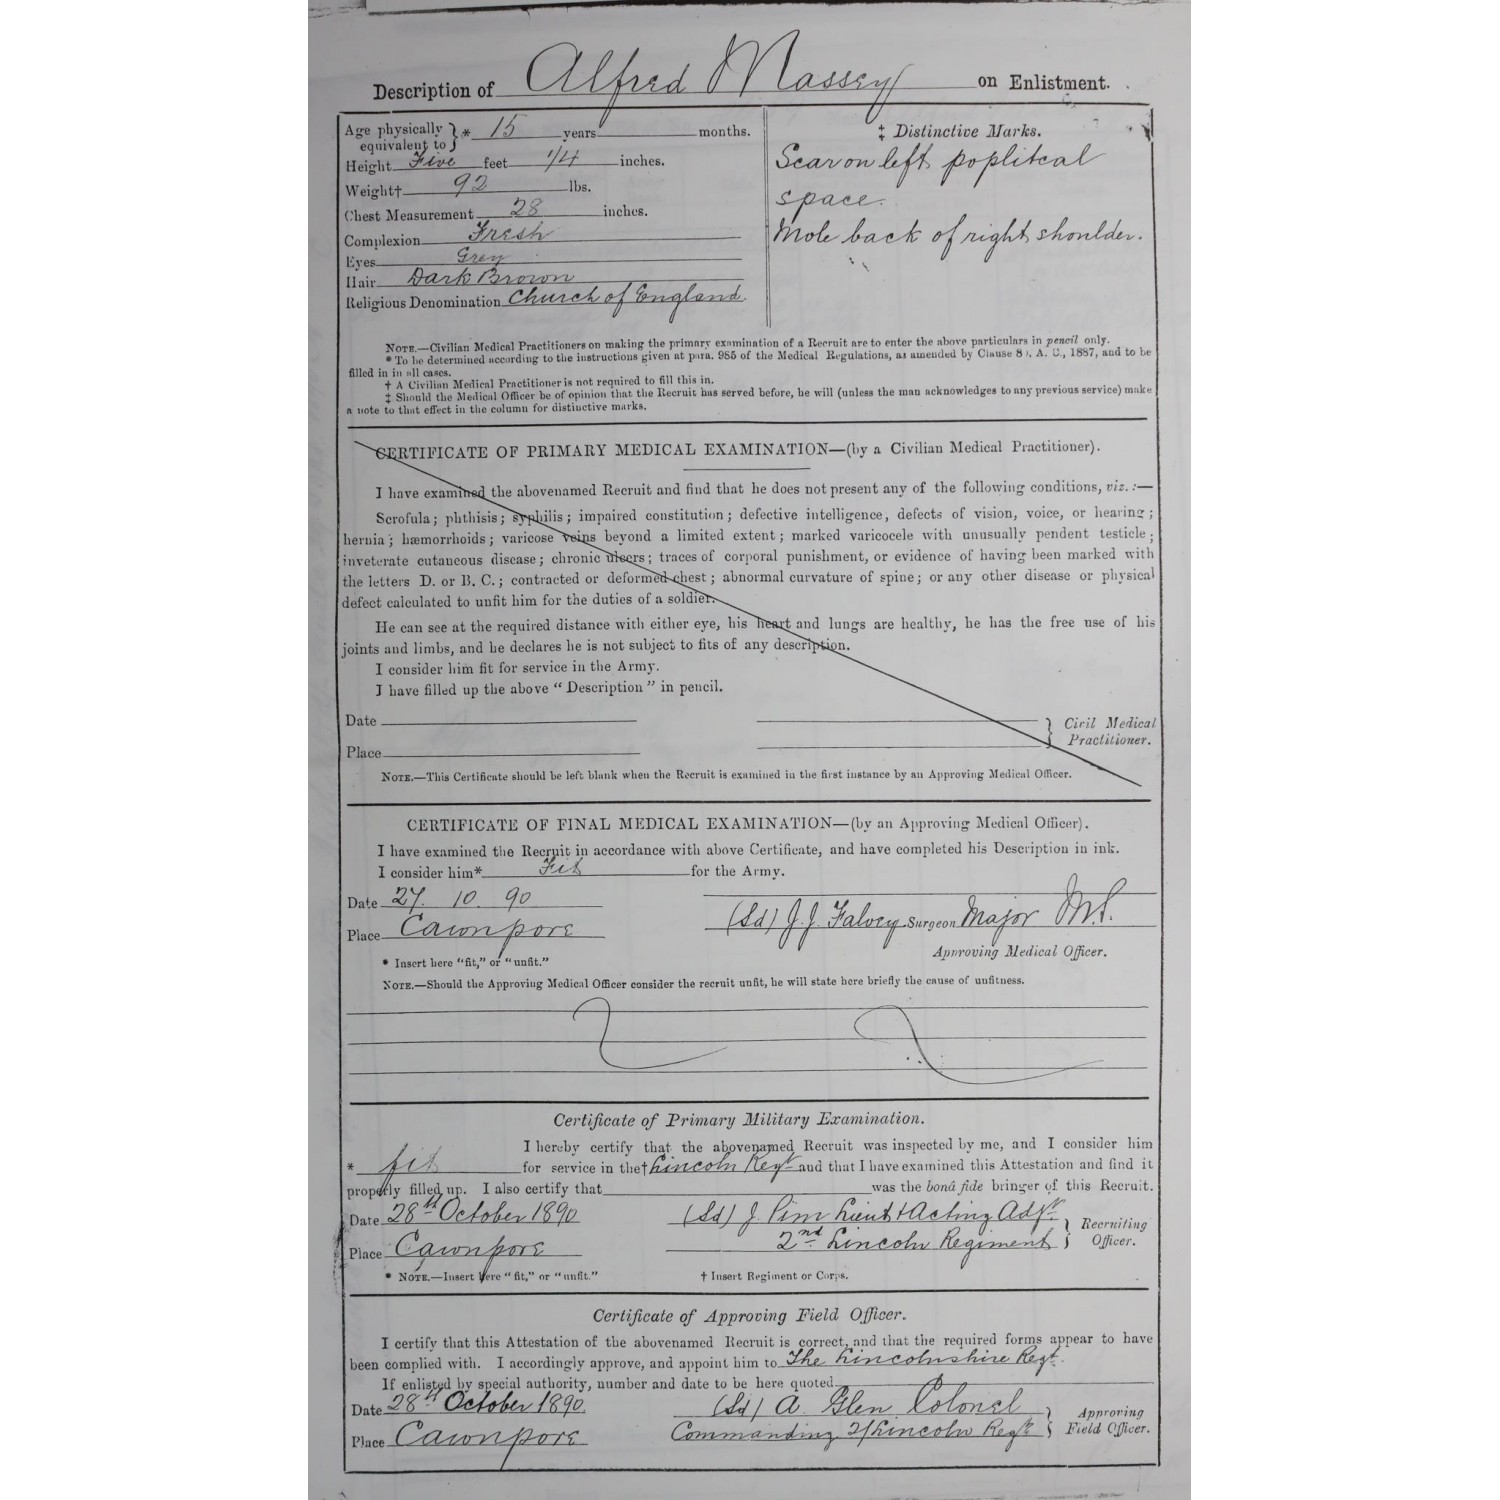 Description of Alfred Massey on Enlistment.
Age physically equivalent to } * 15 years months.
Height Five feet 1/4 inches.
Weight† 92 lbs.
Chest Measurement 28 inches.
Complexion Fresh
Eyes Grey
Hair Dark Brown
Religious Denomination Church of England.
‡ Distinctive Marks.
Scar on left popliteal
space.
Mole back of right shoulder.
NOTE.—Civilian Medical Practitioners on making the primary examination of a Recruit are to enter the above particulars in pencil only.
* To be determined according to the instructions given at para. 985 of the Medical Regulations, as amended by Clause 8 , A. C., 1887, and to be
filled in in all cases.
† A Civilian Medical Practitioner is not required to fill this in.
‡ Should the Medical Officer be of opinion that the Recruit has served before, he will (unless the man acknowledges to any previous service) make
a note to that effect in the column for distinctive marks.
CERTIFICATE OF PRIMARY MEDICAL EXAMINATION—(by a Civilian Medical Practitioner).
I have examined the abovenamed Recruit and find that he does not present any of the following conditions, viz.:—
Scrofula; phthisis; syphilis; impaired constitution; defective intelligence, defects of vision, voice, or hearing;
hernia; hæmorrhoids; varicose veins beyond a limited extent; marked varicocele with unusually pendent testicle;
inveterate cutaneous disease; chronic ulcers; traces of corporal punishment, or evidence of having been marked with
the letters D. or B. C.; contracted or deformed chest; abnormal curvature of spine; or any other disease or physical
defect calculated to unfit him for the duties of a soldier.
He can see at the required distance with either eye, his heart and lungs are healthy, he has the free use of his
joints and limbs, and he declares he is not subject to fits of any description.
I consider him fit for service in the Army.
I have filled up the above "Description" in pencil.
Date
Place
} Civil Medical
Practitioner.
NOTE.—This Certificate should be left blank when the Recruit is examined in the first instance by an Approving Medical Officer.
CERTIFICATE OF FINAL MEDICAL EXAMINATION—(by an Approving Medical Officer).
I have examined the Recruit in accordance with above Certificate, and have completed his Description in ink.
I consider him* Fit for the Army.
Date 27. 10. 90
Place Cawnpore
(Sd) J. J. Falvey Surgeon Major M.S.
Approving Medical Officer.
* Insert here "fit," or "unfit."
NOTE.—Should the Approving Medical Officer consider the recruit unfit, he will state here briefly the cause of unfitness.
Certificate of Primary Military Examination.
I hereby certify that the abovenamed Recruit was inspected by me, and I consider him
* fit for service in the† Lincoln Regt and that I have examined this Attestation and find it
properly filled up. I also certify that was the bonâ fide bringer of this Recruit.
Date 28th October 1890 (Sd) J. Pim Lieut & Acting Adjt
Place Cawnpore 2nd Lincoln Regiment } Recruiting
Officer.
* NOTE.—Insert here "fit," or "unfit." † Insert Regiment or Corps.
Certificate of Approving Field Officer.
I certify that this Attestation of the abovenamed Recruit is correct, and that the required forms appear to have
been complied with. I accordingly approve, and appoint him to The Lincolnshire Regt.
If enlisted by special authority, number and date to be here quoted
Date 28th October 1890. (Sd) A Glen Colonel
Place Cawnpore Commanding 2/Lincoln Regt } Approving
Field Officer.